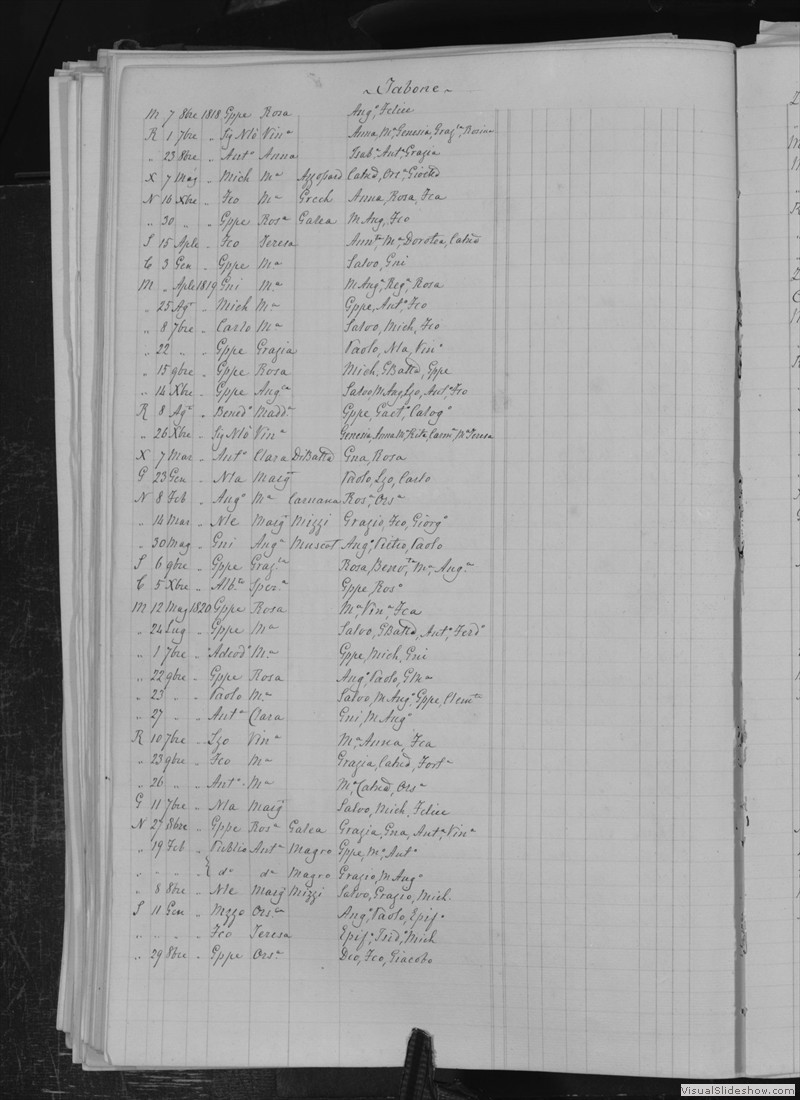 Tabone
M 7 8bre 1818 Gppe Rosa Angᵒ, Felice
R 1 7bre „ Sg Nlò Vinᵃ Anna, Mᵃ, Genesia, Grazᵃ, Rosina
„ 23 8bre „ Antᵒ Anna Isabᵃ, Antᵃ, Grazia
X 7 Mag „ Mich Mᵃ Azzopard Catad, Orsᵃ, Gioctd
N 16 Xbre „ Fco Mᵃ Grech Anna, Rosa, Fca
„ 30 „ „ Gppe Rosᵃ Galea M Ang, Fco
S 15 Aple „ Fco Teresa Anntᵃ, Mᵃ, Dorotea, Catad
C 3 Gen „ Gppe Mᵃ Salvo, Gni
M „ Aple 1819 Gni Mᵃ M Angᵒ, Regᵃ, Rosa
„ 25 Agᵗ „ Mich Mᵃ Gppe, Antᵒ, Fco
„ 8 7bre „ Carlo Mᵃ Salvo, Mich, Fco
„ 22 „ „ Gppe Grazia Paolo, Nla, Vinᵒ
„ 15 9bre „ Gppe Rosa Mich, GBatta, Gppe
„ 14 Xbre „ Gppe Angᵃ Salvo, M Ang, Lzo, Antᵒ, Fco
R 8 Agᵗ „ Bendᵒ Maddᵃ Gppe, Gaetᵒ, Calogᵒ
„ 26 Xbre „ Sg Nlò Vinᵃ Genesia, Anna Mᵃ, Rita, Carmᵃ, Mᵃ Teresa
X 7 Mar „ Antᵒ Clara DiBatta Gna, Rosa
G 23 Gen „ Nla Marg Paolo, Lzo, Carlo
N 8 Feb „ Angᵒ Mᵃ Caruana Rosᵃ, Orsᵃ
„ 14 Mar „ Nle Marg Mizzi Grazio, Fco, Giorgᵒ
„ 30 Mag „ Gni Angᵃ Muscat Angᵒ, Pietro, Paolo
S 6 9bre „ Gppe Grazᵃ Rosa, Benᵗᵃ, Mᵃ, Angᵃ
C 5 Xbre „ Albᵗᵒ Sperᵃ Gppe, Rosᵒ
M 12 Mag 1820 Gppe Rosa Mᵃ, Vinᵃ, Fca
„ 24 Lug „ Gppe Mᵃ Salvo, GBatta, Antᵒ, Ferdᵒ
„ 1 7bre „ Adeodᵒ Mᵃ Gppe, Mich, Gni
„ 22 9bre „ Gppe Rosa Angᵒ, Paolo, GMᵃ
„ 23 „ „ Paolo Mᵃ Salvo, M Angᵒ, Gppe, Clemᵗᵉ
„ 27 „ „ Antᵒ Clara Gni, M Angᵒ
R 10 7bre „ Lzo Vinᵃ Mᵃ, Anna, Fca
„ 23 9bre „ Fco Mᵃ Grazia, Catad, Fortᵃ
„ 26 „ „ Antᵒ Mᵃ Mᵃ, Catad, Orsᵃ
G 11 7bre „ Nla Marg Salvo, Mich, Felice
N 27 8bre „ Gppe Rosᵃ Galea Grazia, Gna, Antᵃ, Vinᵃ
„ 19 Feb „ Publio Antᵃ Magro Gppe, Mᵒ, Antᵒ
„ „ „ { dᵒ dᵃ Magro Grazio, M Angᵒ
„ 8 8bre „ Nle Marg Mizzi Salvo, Grazio, Mich.
S 11 Gen „ Mzzo Orsᵒˡᵃ Angᵒ, Paolo, Epifᵒ
„ „ „ „ Fco Teresa Epifᵒ, Isidᵒ, Mich
„ 29 8bre „ Gppe Orsᵃ Dco, Fco, Giacobo
VisualSlideshow.com